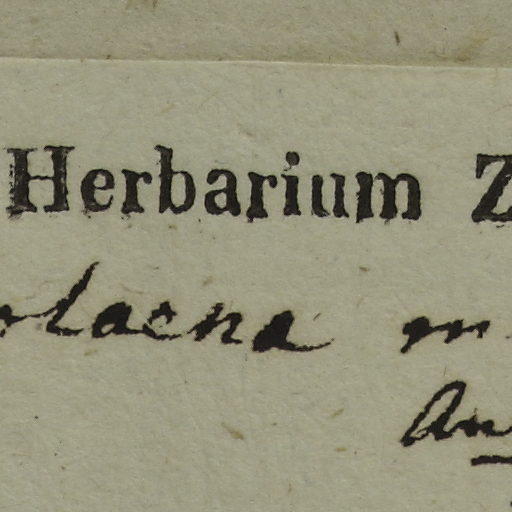 Herbarium Z
olaena m
An